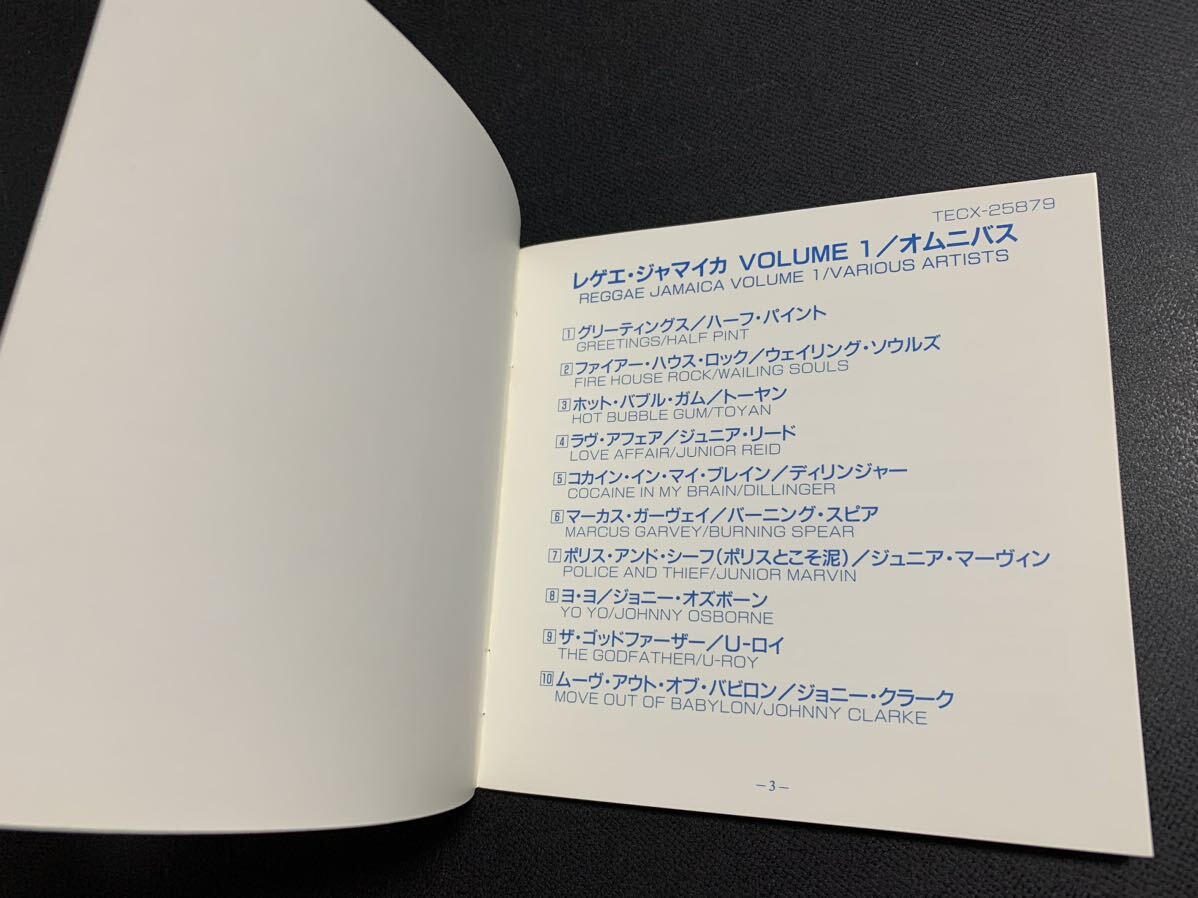 TECX-25879
レゲエ・ジャマイカ VOLUME 1／オムニバス
REGGAE JAMAICA VOLUME 1/VARIOUS ARTISTS
1 グリーティングス／ハーフ・パイント
GREETINGS/HALF PINT
2 ファイアー・ハウス・ロック／ウェイリング・ソウルズ
FIRE HOUSE ROCK/WAILING SOULS
3 ホット・バブル・ガム／トーヤン
HOT BUBBLE GUM/TOYAN
4 ラヴ・アフェア／ジュニア・リード
LOVE AFFAIR/JUNIOR REID
5 コカイン・イン・マイ・ブレイン／ディリンジャー
COCAINE IN MY BRAIN/DILLINGER
6 マーカス・ガーヴェイ／バーニング・スピア
MARCUS GARVEY/BURNING SPEAR
7 ポリス・アンド・シーフ（ポリスとこそ泥）／ジュニア・マーヴィン
POLICE AND THIEF/JUNIOR MARVIN
8 ヨ・ヨ／ジョニー・オズボーン
YO YO/JOHNNY OSBORNE
9 ザ・ゴッドファーザー／U-ロイ
THE GODFATHER/U-ROY
10 ムーヴ・アウト・オブ・バビロン／ジョニー・クラーク
MOVE OUT OF BABYLON/JOHNNY CLARKE
－3－